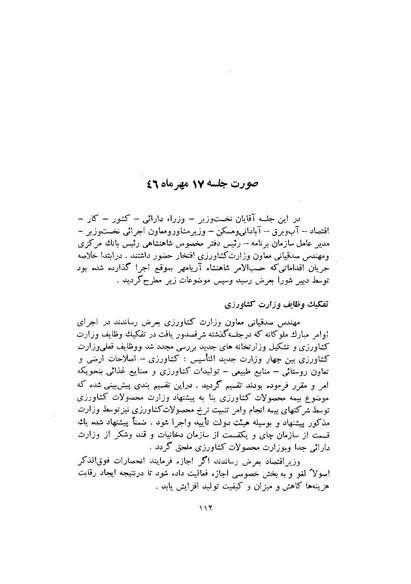 صورت جلسه ۱۷ مهرماه ۴۶
در این جلسه آقایان نخست‌وزیر – وزراء دارائی – کشور – کار –
اقتصاد – آب‌وبرق – آبادانی‌ومسکن – وزیرمشاورومعاون اجرائی نخست‌وزیر –
مدیر عامل سازمان برنامه – رئیس دفتر مخصوص شاهنشاهی رئیس بانک مرکزی
ومهندس صدقیانی معاون وزارت‌کشاورزی افتخار حضور داشتند . درابتدا خلاصه
جریان اقداماتی‌که حسب‌الامر شاهنشاه آریامهر بموقع اجرا گذارده شده بود
توسط دبیر شورا بعرض رسید وسپس موضوعات زیر مطرح‌گردید .
تفکیک وظایف وزارت کشاورزی
مهندس صدقیانی معاون وزارت کشاورزی بعرض رساندند در اجرای
اوامر مبارک ملوکانه که درجلسه‌گذشته شرفصدور یافت در تفکیک وظایف وزارت
کشاورزی و تشکیل وزارتخانه های جدید بررسی مجدد شد ووظایف فعلی‌وزارت
کشاورزی بین چهار وزارت جدید التأسیس : کشاورزی – اصلاحات ارضی و
تعاون روستائی – منابع طبیعی – تولیدات کشاورزی و صنایع غذائی بنحویکه
امر و مقرر فرموده بودند تقسیم گردید . دراین تقسیم بندی پیش‌بینی شده که
موضوع بیمه محصولات کشاورزی بنا به پیشنهاد وزارت محصولات کشاورزی
توسط شرکتهای بیمه انجام وامر تثبیت نرخ محصولات‌کشاورزی نیزتوسط وزارت
مذکور پیشنهاد و بوسیله هیئت دولت تأیید واجرا شود . ضمناً پیشنهاد شده یک
قسمت از سازمان چای و یکقسمت از سازمان دخانیات و قند وشکر از وزارت
دارائی جدا وبوزارت محصولات کشاورزی ملحق گردد .
وزیراقتصاد بعرض رساندند اگر اجازه فرمایند انحصارات فوق‌الذکر
اصولاً لغو و به بخش خصوصی اجازه فعالیت داده شود تا درنتیجه ایجاد رقابت
هزینه‌ها کاهش و میزان و کیفیت تولید افزایش یابد .
۱۱۲